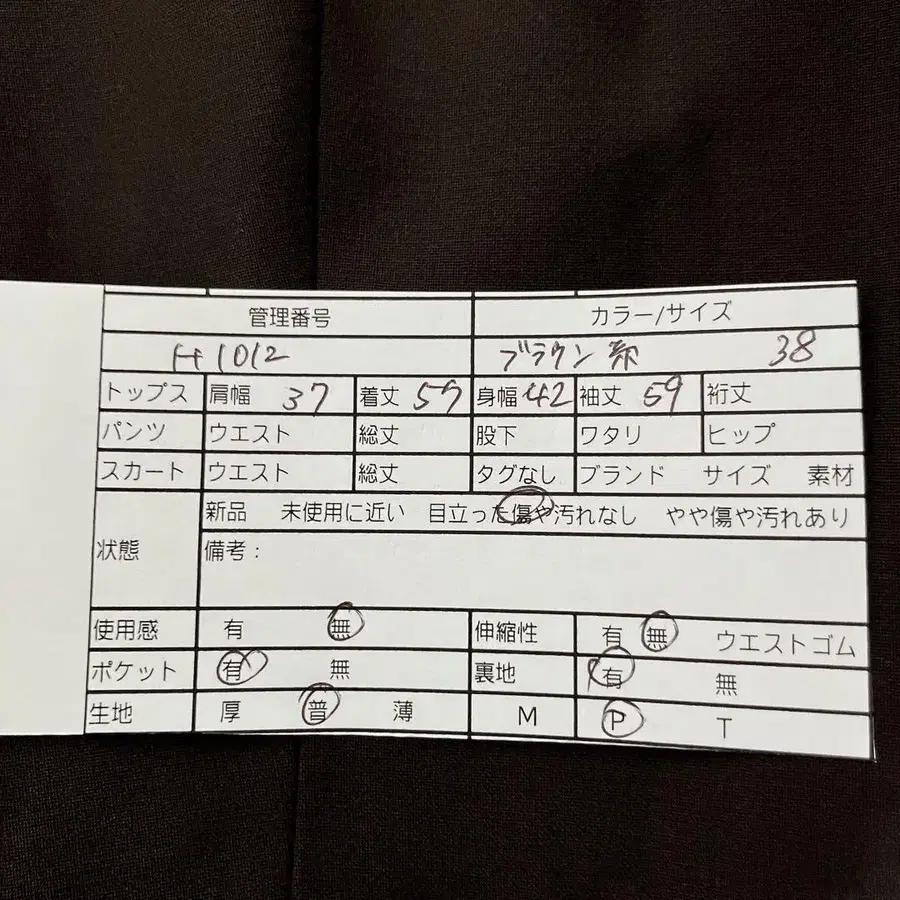 管理番号 カラー/サイズ
H1012 ブラウン系 38
トップス 肩幅 37 着丈 57 身幅 42 袖丈 59 裄丈
パンツ ウエスト 総丈 股下 ワタリ ヒップ
スカート ウエスト 総丈 タグなし ブランド サイズ 素材
新品 未使用に近い 目立った傷や汚れなし やや傷や汚れあり
状態 備考：
使用感 有 無 伸縮性 有 無 ウエストゴム
ポケット 有 無 裏地 有 無
生地 厚 普 薄 M P T